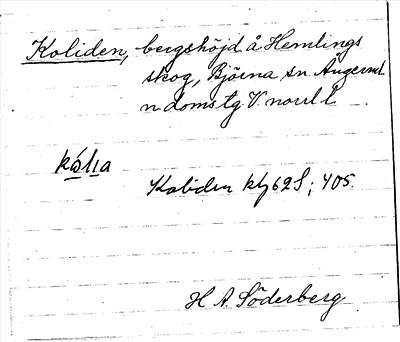 Koliden, bergshöjd å Hemlings
skog, Björna sn. Ångerml
n. doms.tg. V. norrl l.
kálıa
Koliden kbl 62 S; 405.
H A. Söderberg